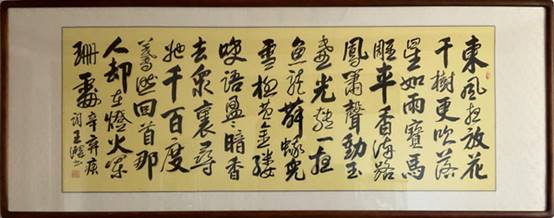 東風夜放花
千樹更吹落
星如雨寶馬
雕車香滿路
鳳簫聲動玉
壺光轉一夜
魚龍舞蛾兒
雪柳黃金縷
笑語盈暗香
去衆裏尋
她千百度
驀然回首那
人却在燈火闌
珊處
辛弃疾
词王